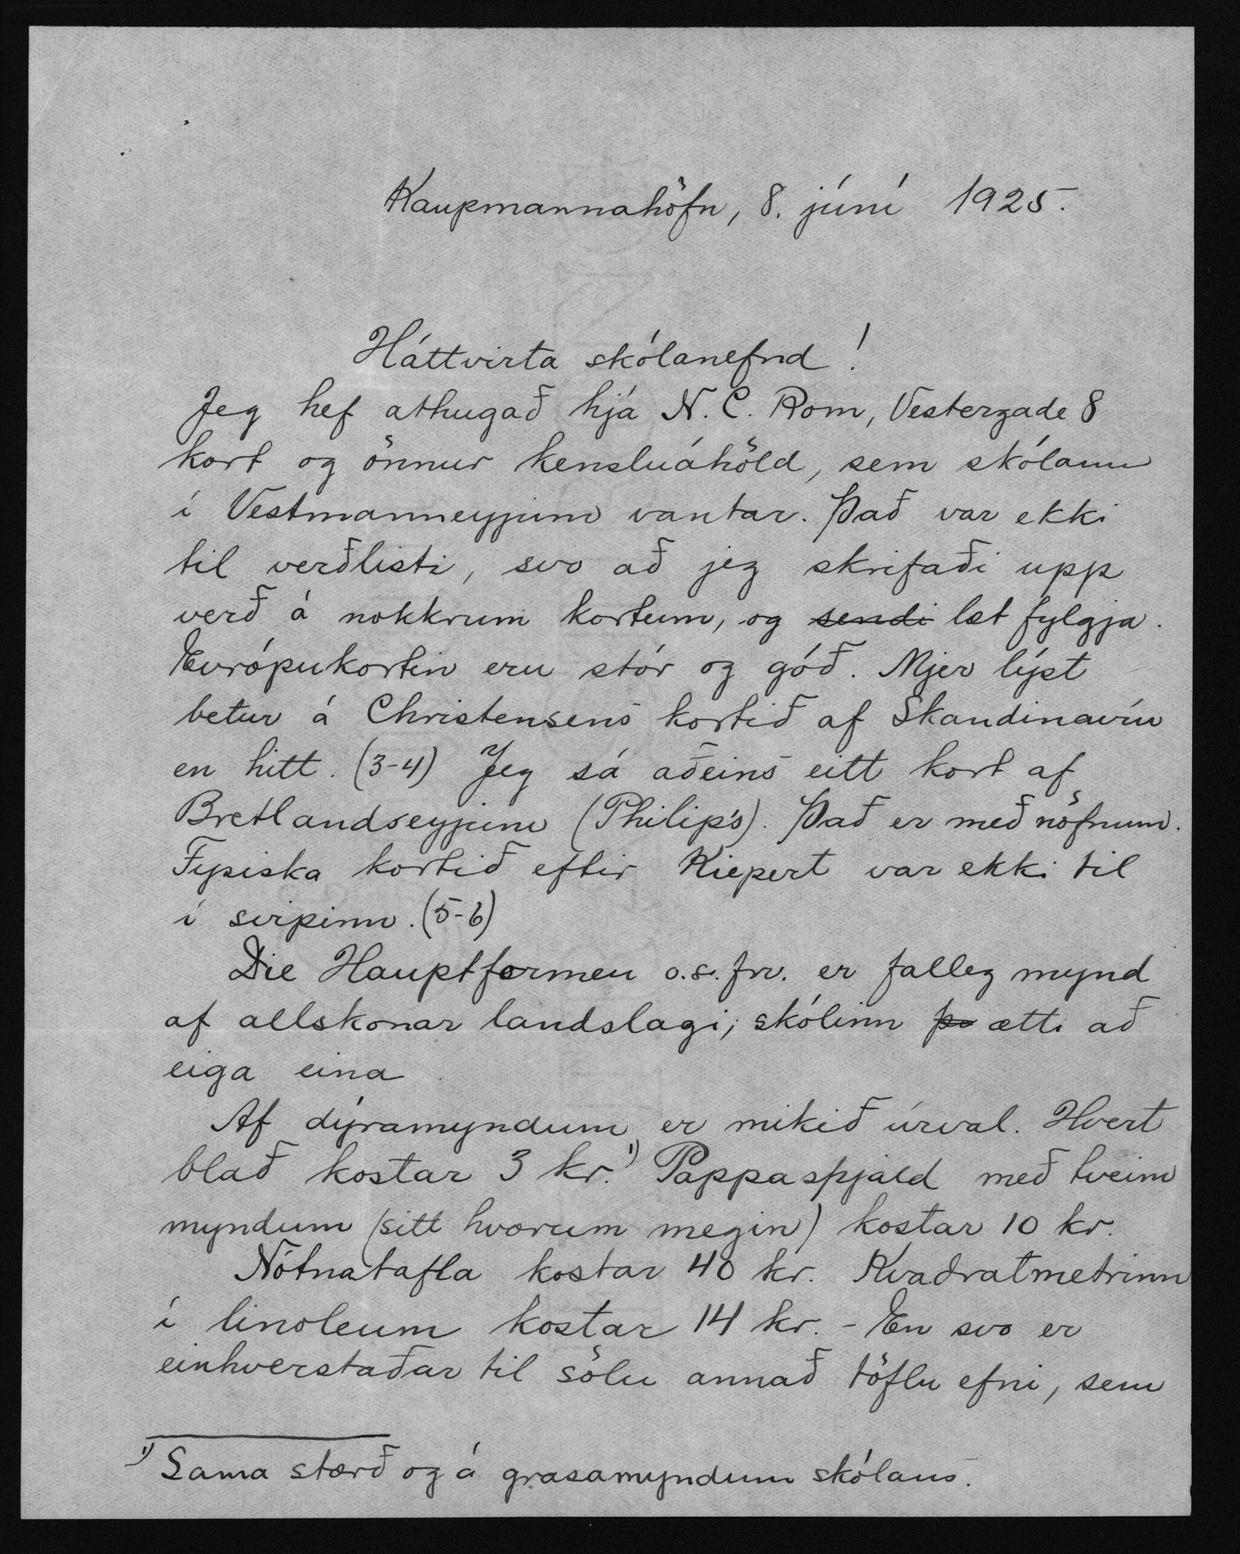 Kaupmannahöfn, 8. júní 1925.
Háttvirta skólanefnd!
Jeg hef athugað hjá N. C. Rom, Vestergade 8
kort og önnur kensluáhöld, sem skólann
í Vestmanneyjum vantar. Það var ekki
til verðlisti, svo að jeg skrifaði upp
verð á nokkrum kortum, og sendi læt fylgja.
Evrópukortin eru stór og góð. Mjer lýst
betur á Christensens kortið af Skandinavíu
en hitt. (3-4) Jeg sá aðeins eitt kort af
Bretlandseyjum (Philip's). Það er með nöfnum.
Fysiska kortið eftir Kiepert var ekki til
í svipinn. (5-6)
Die Hauptformen o.s.frv. er falleg mynd
af allskonar landslagi; skólinn þo ætti að
eiga eina
Af dýramyndum er mikið úrval. Hvert
blað kostar 3 kr.1) Pappaspjald með tveim
myndum (sitt hvorum megin) kostar 10 kr.
Nótnatafla kostar 40 kr. Kvadratmetrinn
í linoleum kostar 14 kr. - En svo er
einhverstaðar til sölu annað töflu efni, sem
1) Sama stærð og á grasamyndum skólans.